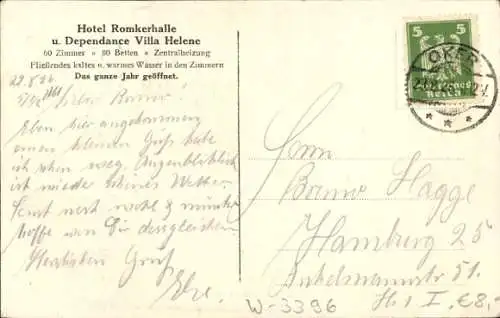 Hotel Romkerhalle
u. Dependance Villa Helene
60 Zimmer • 80 Betten • Zentralheizung
Fließendes kaltes u. warmes Wasser in den Zimmern
Das ganze Jahr geöffnet.
5 5
OKER
Deutsches
Reich
22.8.26.
Lieber Bruno!
Eben hier angekommen
einen kleinen Gruß habe
ich schon Augenblicklich
ist wieder schönes Wetter.
Sonst recht wohl & munter
hoffe von Dir desgleichen
Herzlichen Gruß
Herrn
Bruno Hagge
Hamburg 25
51.
W-3396
I, €8,-